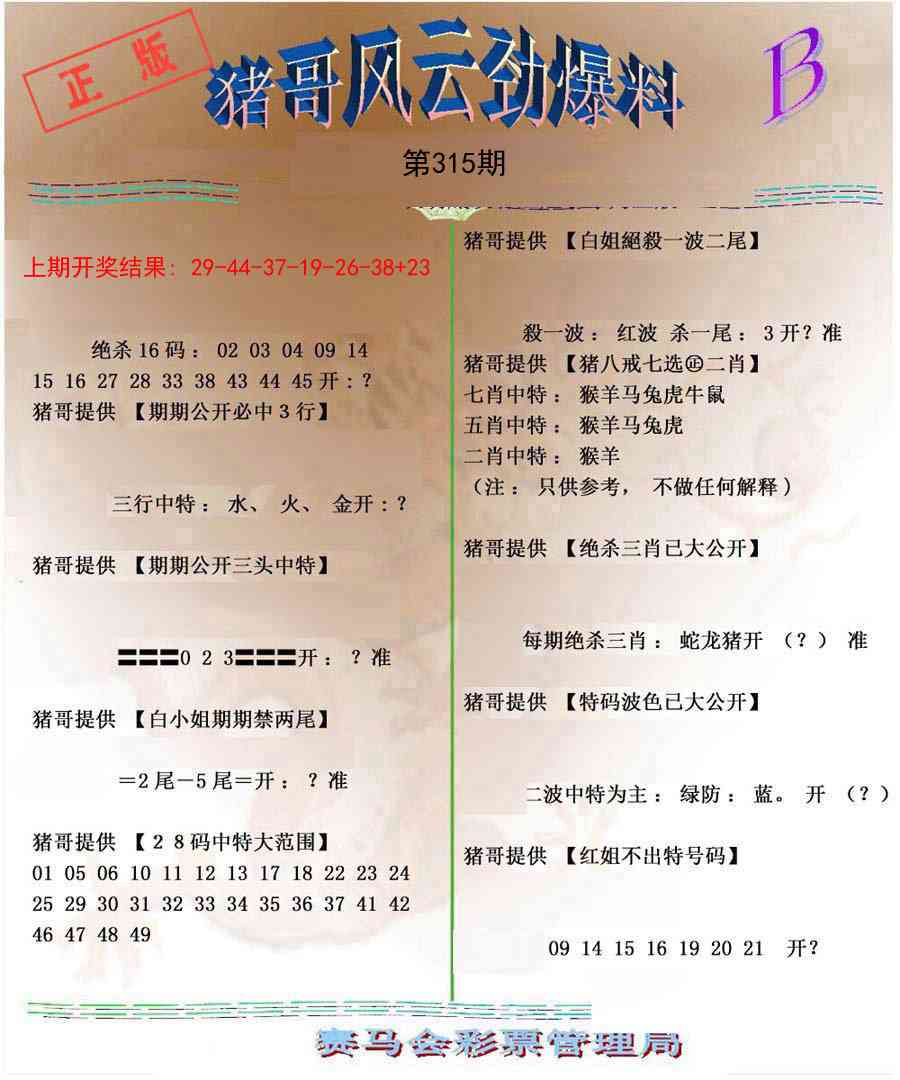 正版
猪哥风云劲爆料
B
第315期
上期开奖结果: 29-44-37-19-26-38+23
绝杀16码: 02 03 04 09 14
15 16 27 28 33 38 43 44 45开:?
猪哥提供 【期期公开必中3行】
三行中特: 水、 火、 金开:?
猪哥提供 【期期公开三头中特】
〓〓〓0 2 3〓〓〓开: ?准
猪哥提供 【白小姐期期禁两尾】
=2尾-5尾=开: ?准
猪哥提供 【28码中特大范围】
01 05 06 10 11 12 13 17 18 22 23 24
25 29 30 31 32 33 34 35 36 37 41 42
46 47 48 49
猪哥提供 【白姐絕殺一波二尾】
殺一波: 红波 杀一尾: 3开?准
猪哥提供 【猪八戒七选㊣二肖】
七肖中特: 猴羊马兔虎牛鼠
五肖中特: 猴羊马兔虎
二肖中特: 猴羊
(注: 只供参考, 不做任何解释)
猪哥提供 【绝杀三肖已大公开】
每期绝杀三肖: 蛇龙猪开 (?) 准
猪哥提供 【特码波色已大公开】
二波中特为主: 绿防: 蓝。 开 (?)
猪哥提供 【红姐不出特号码】
09 14 15 16 19 20 21 开?
赛马会彩票管理局